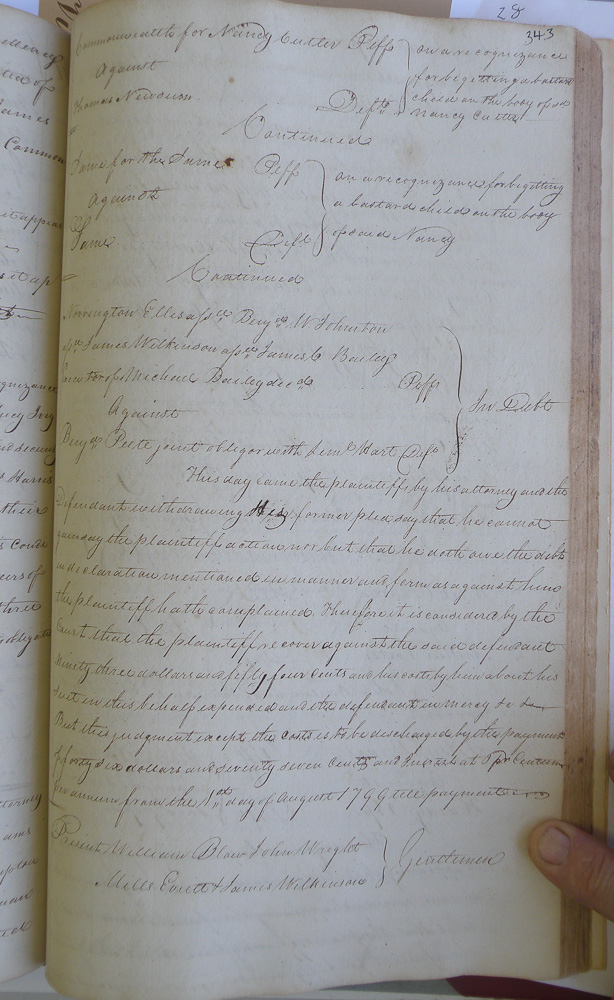 28
343
Commonwealth for Nancy Cutler Peff
Against
Thomas Newsum Deft
on a recognizance
for begetting a bastard
child on the body of sd
Nancy Cutler
Continued
Same for the Same Peff
Against
Same Deft
on a recognizance for begetting
a bastard child on the body
of said Nancy
Continued
Norrington Elles assee Benja W. Johnston
assee James Wilkinson assee James C Bailey
of Michael Bailey decd Peff
Against
Benja Peete joint obligor with Hart Deft
In Debt
This day came the plaintiff by his attorney and the
Defendant withdrawing His former plea say that he cannot
gainsay the plaintiffs action nor but that he doth owe the debt
in declaration mentioned in manner and form as against him
the plaintiff hath complained. Therefore it is considered by the
Court that the plaintiff recover against the said defendant
Ninety three dollars and fifty four Cents and his costs by him about his
suit in this behalf expended and the defendant in mercy &c
But this judgment except the costs is to be discharged by the payment
of forty six dollars and seventy seven Cents and Interest at 5 pr Centum
per annum from the 1st day of August 1799 till payment
Present William Blow John Wright
Mills Eurett & James Wilkinson
Gentlemen